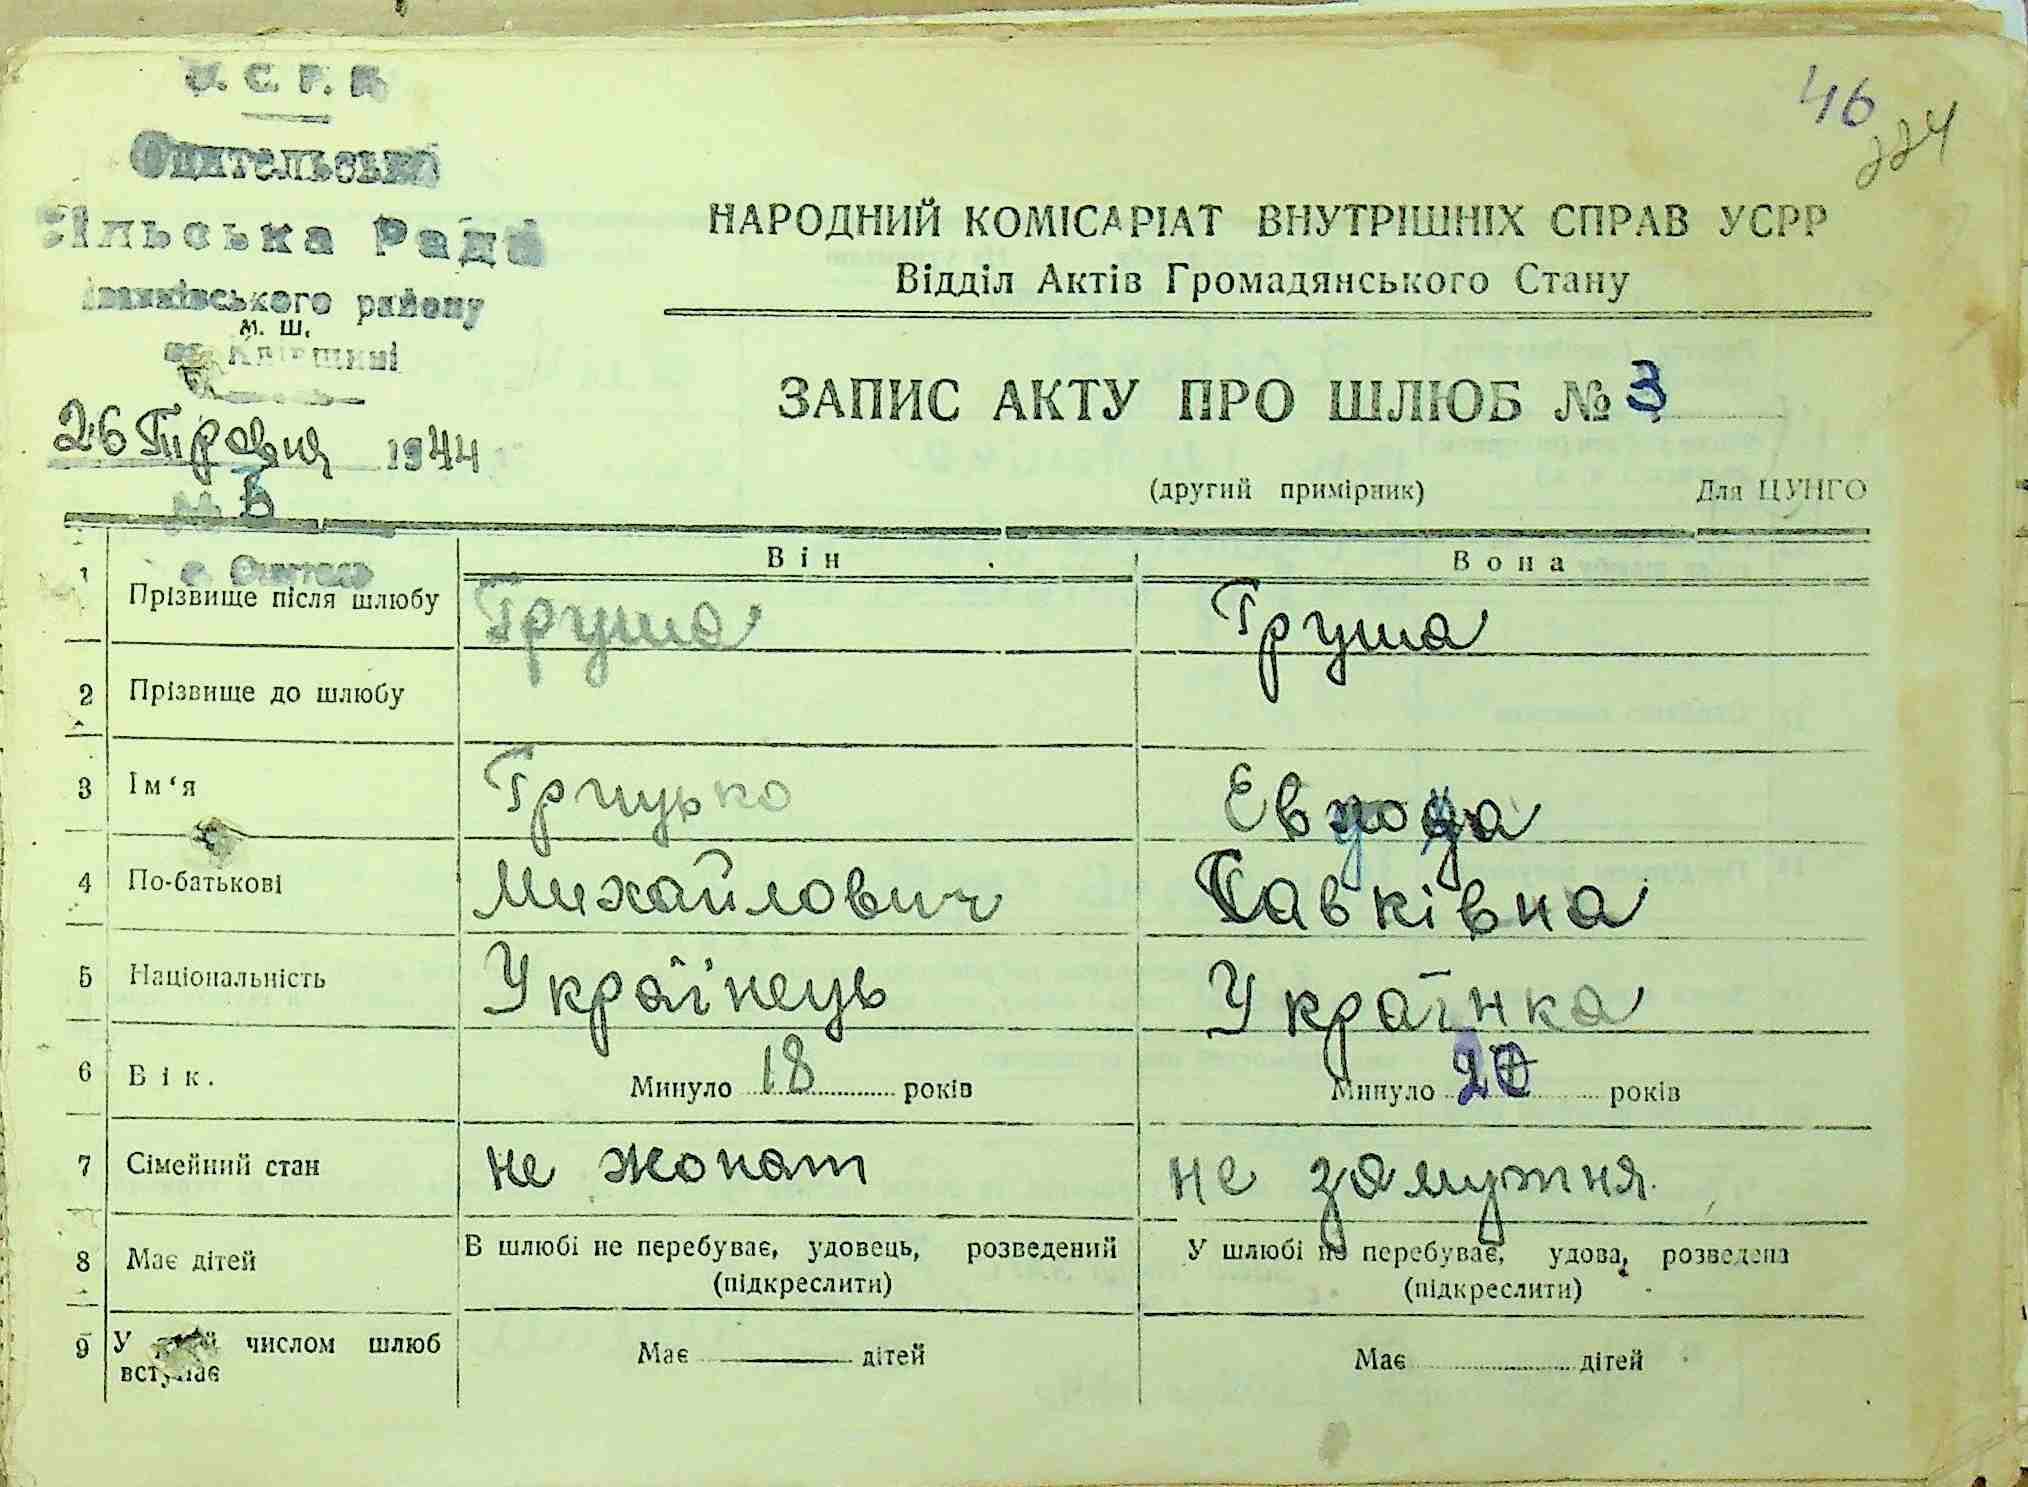 У. С. Р. Р.
Оцительська
Сільська Рада
Іванківського району
М. Ш.
на Київщині
26 Травня 1944
№ 3
с. Оцитель
46
224
НАРОДНИЙ КОМІСАРІАТ ВНУТРІШНІХ СПРАВ УСРР
Відділ Актів Громадянського Стану
ЗАПИС АКТУ ПРО ШЛЮБ № 3
(другий примірник) Для ЦУНГО
Він Вона
1 Прізвище після шлюбу Груша Груша
2 Прізвище до шлюбу
3 Ім‘я Грицько
4 По-батькові Михайлович Савківна
5 Національність Українець Українка
6 Вік. Минуло 18 років Минуло 20 років
7 Сімейний стан не жонат не замужня
8 Має дітей В шлюбі не перебуває, удовець, розведений У шлюбі не перебуває, удова, розведена
(підкреслити) (підкреслити)
9 У числом шлюб Має дітей Має дітей
вступає